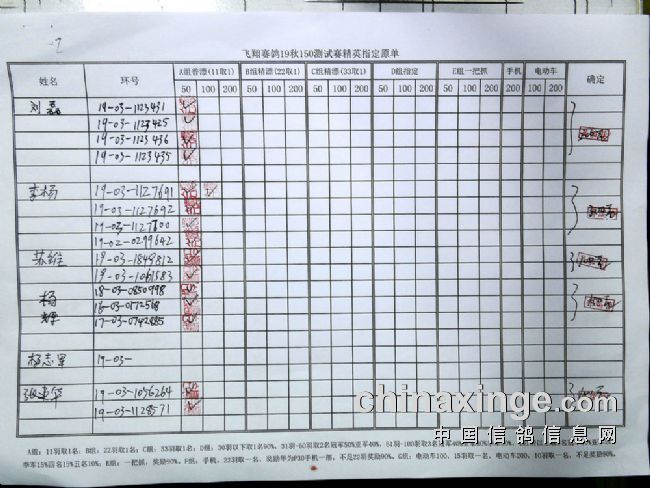 飞翔赛鸽19秋150测试赛精英指定原单
姓名 环号 A组普漂(11取1) B组精漂(22取1) C组精漂(33取1) D组指定 E组一把抓 手机 电动车 确定
50 100 200 50 100 200 50 100 200 50 100 200 50 100 200 100 200
刘磊 19-03-1123431
19-03-1123425
19-03-1123436
19-03-1123435
李杨 19-03-1127691
19-03-1127692
19-03-1127600
19-02-0299642
苏维 19-03-1849812
19-03-1061583
杨辉 18-03-0850998
16-03-0172568
17-03-0742885
杨志军 19-03-
19-03-1056264
19-03-1128571
chinaxinge.com
中国信鸽信息网
A组：11羽取1名；B组：22羽取1名；C组：33羽取1名；D组：30羽以下取1名90%，31羽-60羽取2名冠军50%亚军40%，61羽-100羽取3名冠军40%
季军15%四名15%五名10%；E组：一把抓，奖励90%，F组：手机，22羽取一名，奖励华为P30手机一部，不足22羽奖励90%。G组：电动车100，15羽取一名，电动车200，10羽取一名，不足奖励90%。